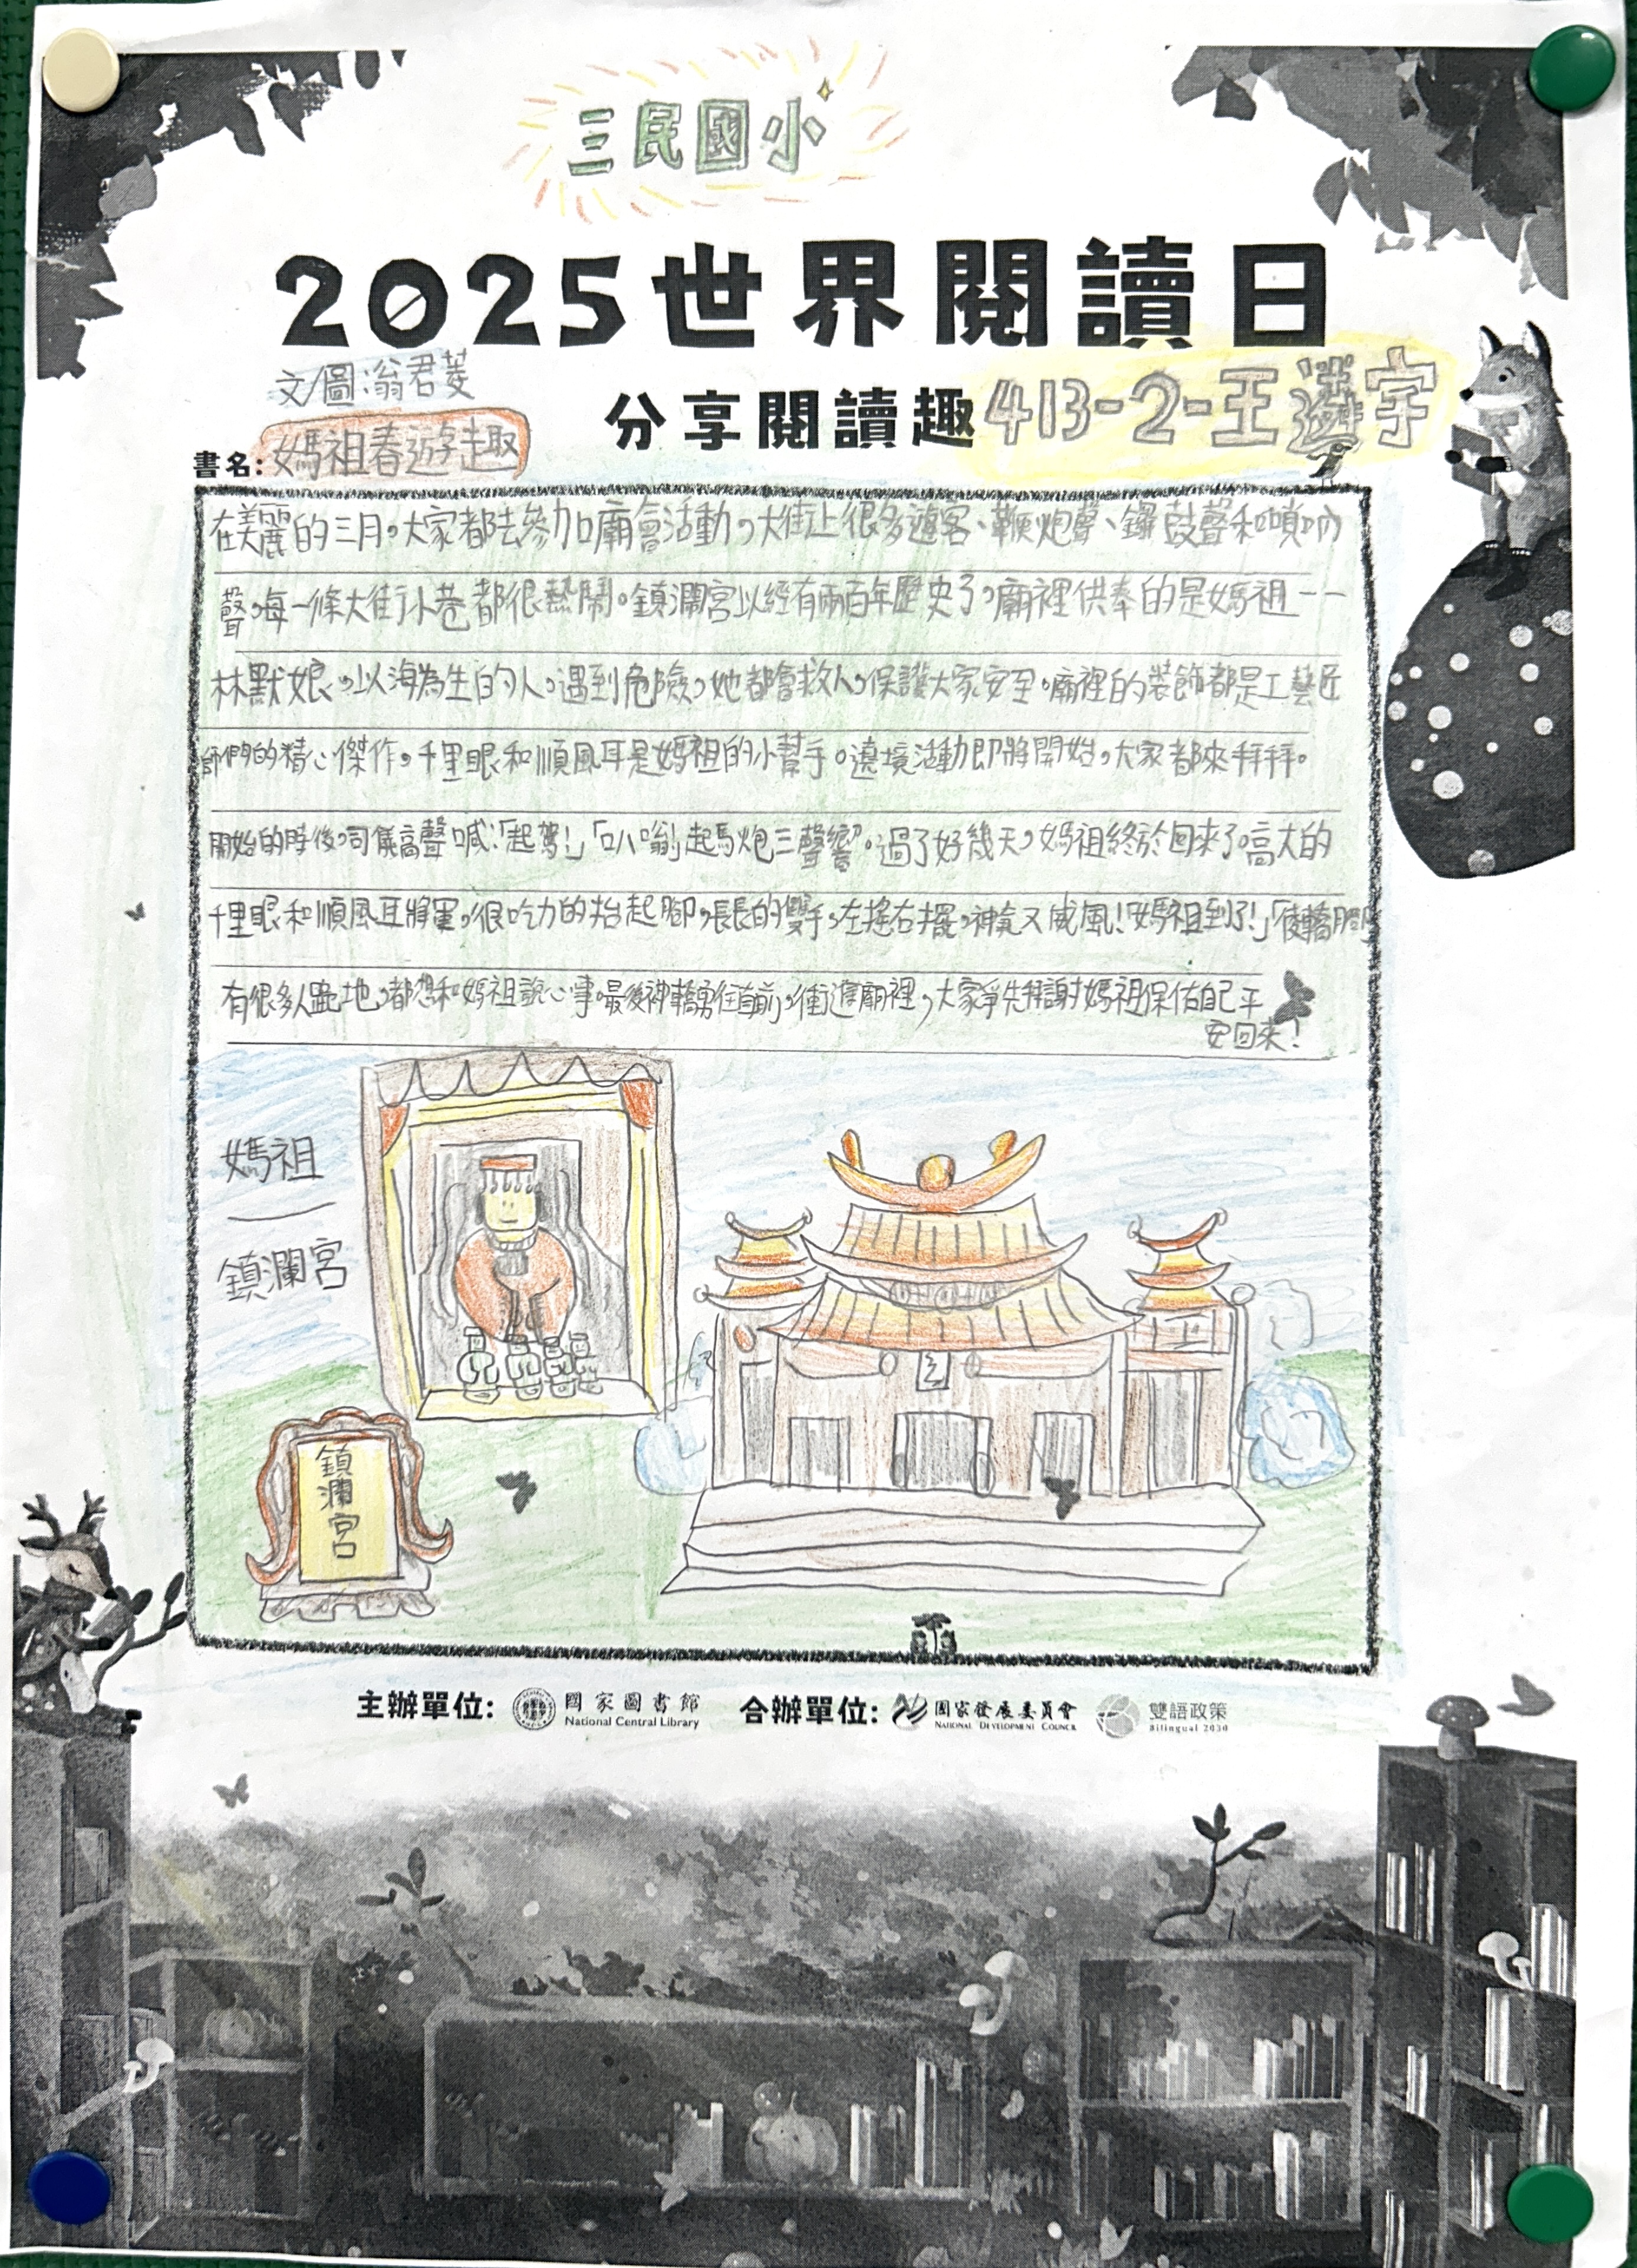 三民國小
2025世界閱讀日
文/圖:翁君菱
分享閱讀趣 413-2-王遴宇
書名:媽祖春遊趣
在美麗的三月,大家都去參加廟會活動,大街上很多遊客、鞭炮聲、鑼鼓聲和嗩吶
聲,每一條大街小巷都很熱鬧。鎮瀾宮以經有兩百年歷史了,廟裡供奉的是媽祖——
林默娘,以海為生的人,遇到危險,她都會救人,保護大家安全。廟裡的裝飾都是工藝匠
師們的精心傑作。千里眼和順風耳是媽祖的小幫手。遶境活動即將開始,大家都來拜拜。
開始的時後,司儀高聲喊:「起駕!」「叭嗡」起馬炮三聲響。過了好幾天,媽祖終於回來了。高大的
千里眼和順風耳將軍,很吃力的抬起腳,長長的雙手,左搖右擺,神氣又威風!「媽祖到了!」
有很多人跪地,都想和媽祖說心事。最後神轎勇往直前,衝進廟裡,大家爭先拜謝媽祖保佑自己平
安回來!
媽祖
—
鎮瀾宮
鎮瀾宮
主辦單位: 國家圖書館 National Central Library 合辦單位: 國家發展委員會 NATIONAL DEVELOPMENT COUNCIL 雙語政策 Bilingual 2030